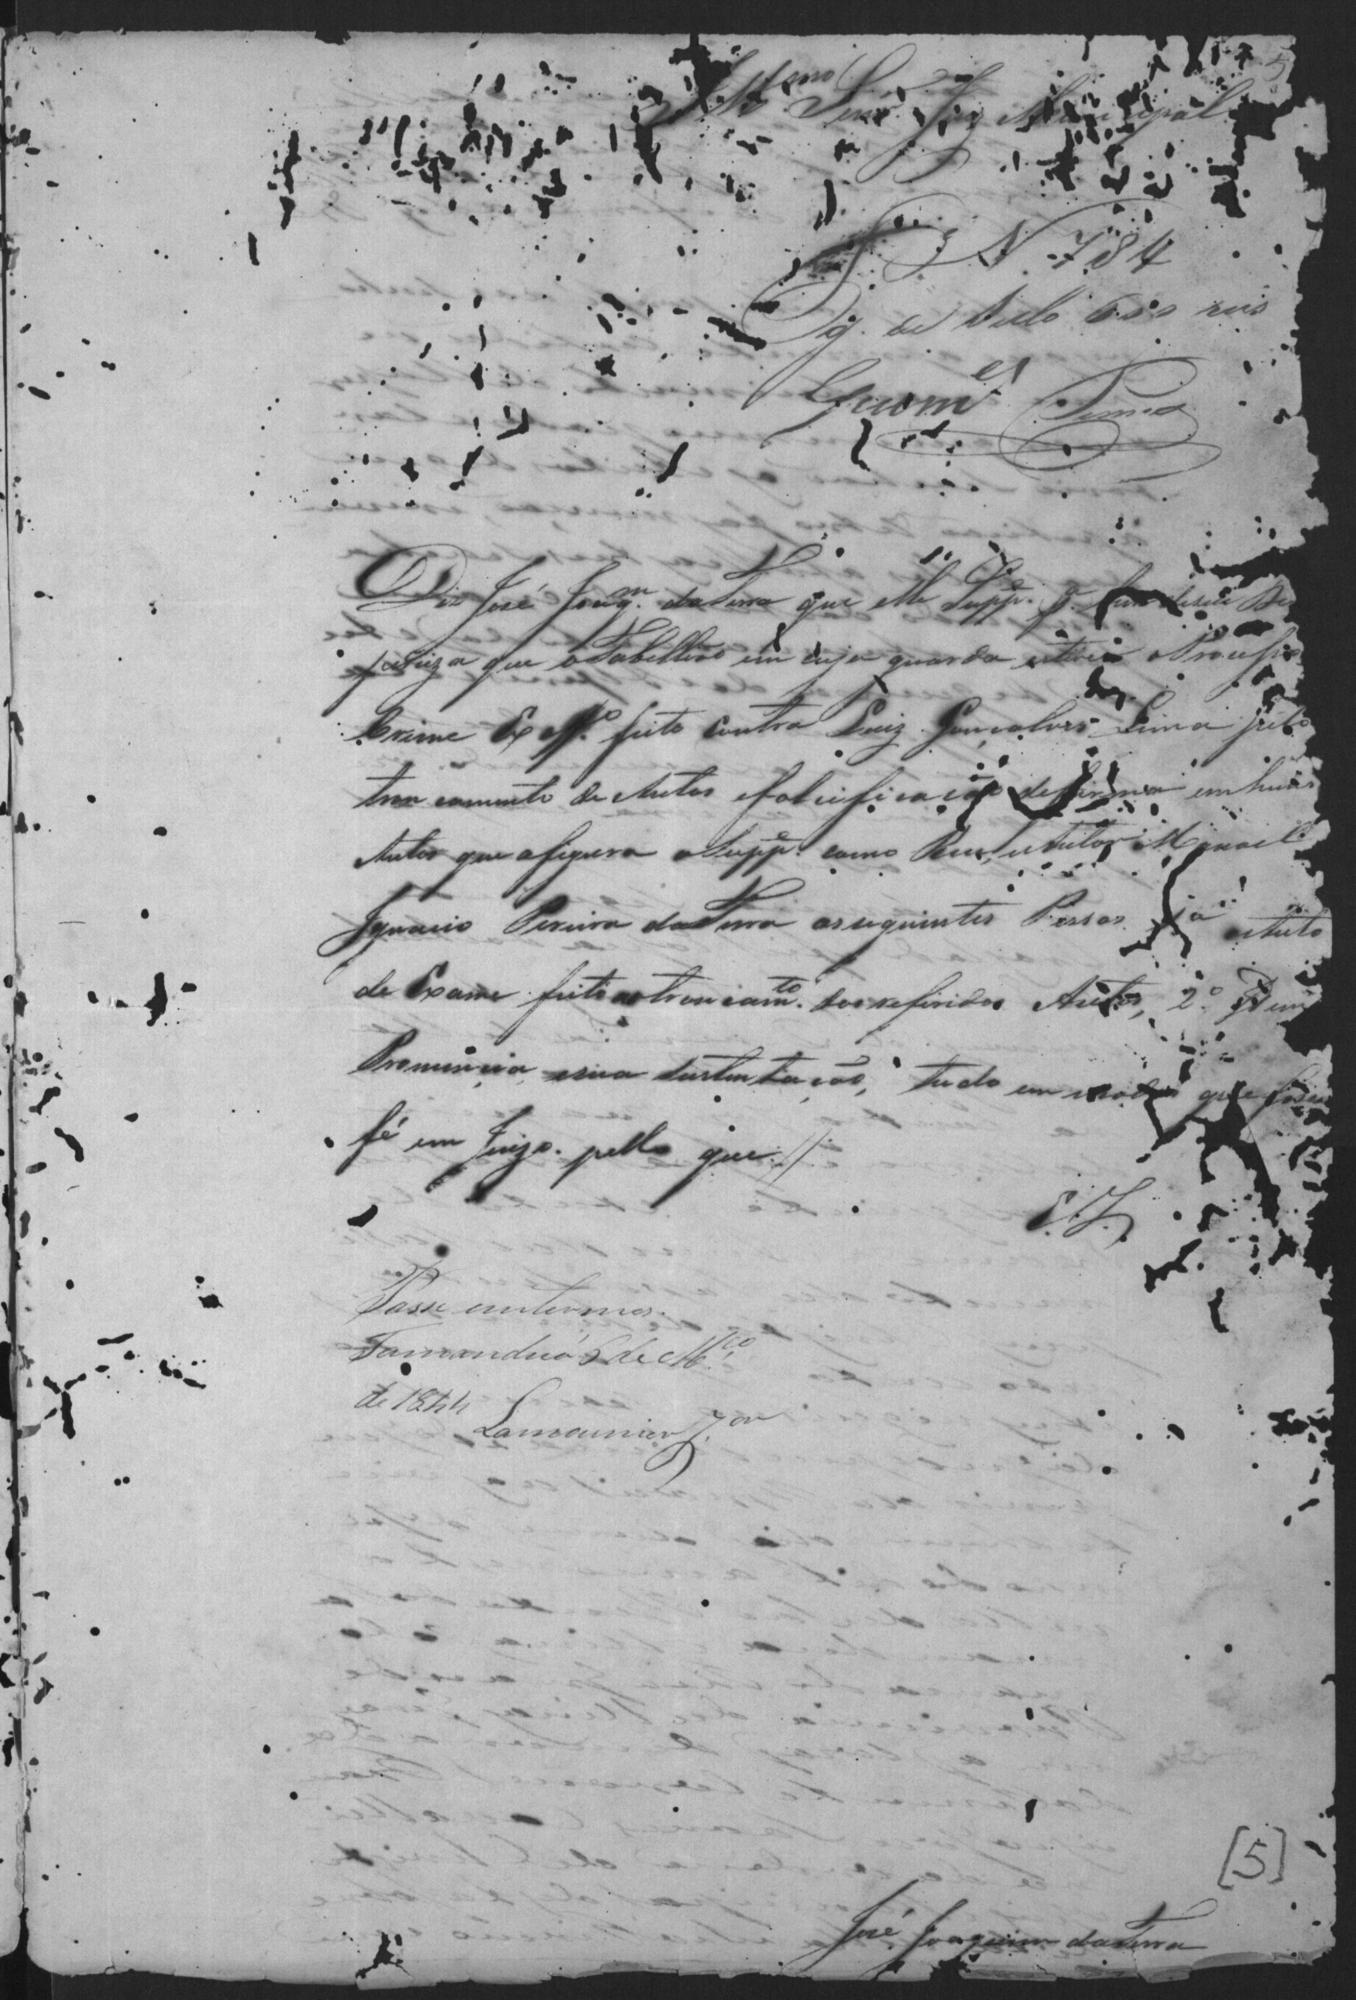 Illmo Senr. Juiz Municipal
5
N 784
Pg. de Sello reis
Guim.es Penna
Diz José Joaqm. da Serra que elle Suppe. p.
precisa que o Tabellião em cuja guarda estiver o Processo
Crime Ex Offo. feito contra Luiz Gonçalves Lima pelo
trancamento de Autos e falcificação de firma em huns
Autos que afigura o Suppe. como Reu, e Autor Manoel
Ignacio Pereira da Serra as seguintes Pessas 1a. o Auto
de Exame feito no trancamto. dos referidos Autos, 2o.
Pronuncia e sua sustentação, tudo em modo que fassa
fé em Juizo. pello que //
E. J.
Passe em termos.
Tamanduá de Mço.
de 1844
Lamounier J.or
[5]
José Joaquim da Serra